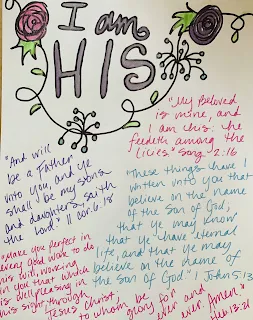 I am
HIS
"My Beloved
is mine, and
I am his: he
feedeth among the
lilies." Song 2:16
"And will
be a Father
unto you, and ye
shall be my sons
and daughters, saith
the Lord." II Cor. 6:18
"These things have I
written unto you that
believe on the name
of the Son of God;
that ye may know
that ye have eternal
life, and that ye may
believe on the name of
the Son of God" 1 John 5:13
"Make you perfect in
every good work to do
his will, working
in you that which
is wellpleasing in
his sight, through
Jesus Christ;
to whom be glory for
ever and ever. Amen."
Heb 13:21